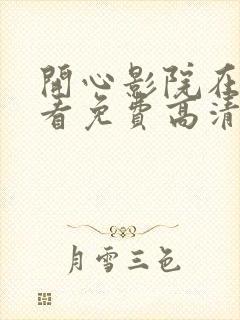 開心影院在
看免費高清
月雪三色